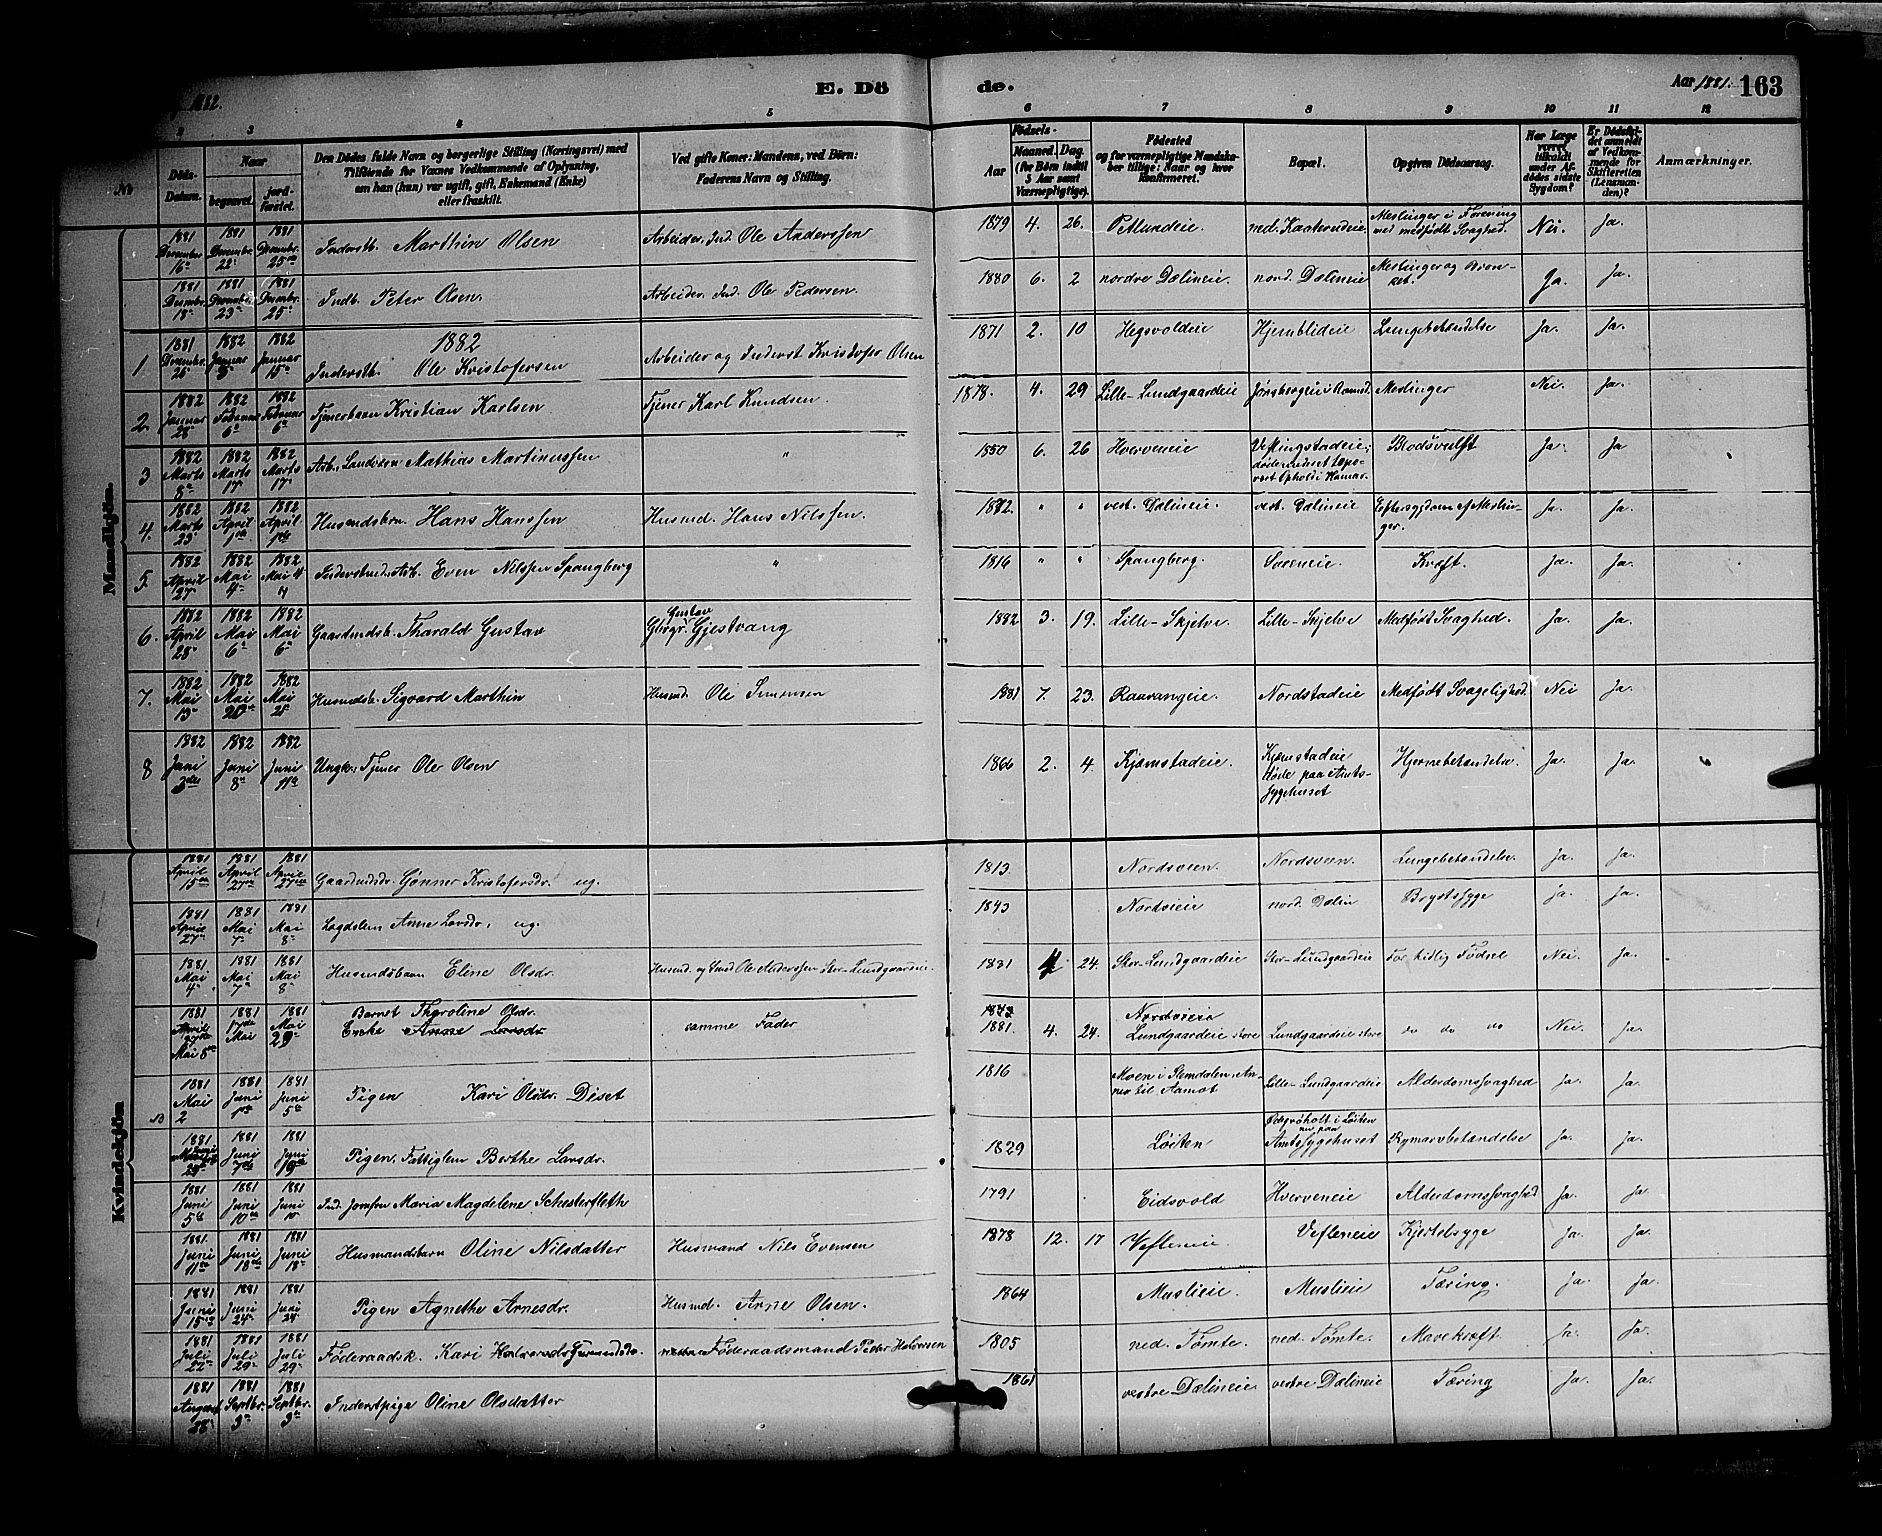 1882.
E. Dö
de.
Aar 1881. 163
2 3 4 5 6 7 8 9 10 11 12
No
Döds-Datum.
Naar
begravet.
jord-fæstet.
Den Dödes fulde Navn og borgerlige Stilling (Næringsvei) med Tilföiende for Voxnes Vedkommende af Oplysning, om han (hun) var ugift, gift, Enkemand (Enke) eller fraskilt.
Ved gifte Koner: Mandens, ved Börn: Faderens Navn og Stilling.
Födsels-
Aar
Maaned. Dag.
(for Börn indtil 5 Aar samt Værnepligtige).
Födested og for værnepligtige Mandskaber tillige: Naar og hvor konfirmeret.
Bopæl.
Opgiven Dödsaarsag.
Har Læge været tilkaldt under Afdödes sidste Sygdom?
Er Dödsfaldet anmeldt af Vedkommende for Skifteretten (Lensmanden)?
Anmærkninger.
Mandkjön.
1881 December 16de 1881 Decembr. 22de 1881 Decembr. 25de Indersth. Marthin Olsen Arbeider, Ind. Ole Anderssen 1879 4. 26. Petlundeie. ned. Kaaterudeie Meslinger i Forening med medfødt Svaghed. Nei. Ja.
1881 Decmbr. 18de 1881 Decembr. 23de 1881 Decmbr. 25de Indb. Peter Olsen. Arbeider, Ind. Ole Pedersen. 1880 6. 2 nordre Dælineie. nord. Dælineie Meslinger og Bronket. Ja. Ja.
1882
1 1881 Decembr. 25 1882 Januar 5te 1882 Januar 15de Indersth. Ole Kristofersen Arbeider og Inderst Kristofer Olsen 1871 2. 10 Hegsvoldeie Hjemblideie Lungebetændelse Ja. Ja.
2. 1882 Januar 28de 1882 Februar 6te 1882 Februar 6te Tjenerbarn Kristian Karlsen Tjener Karl Knudsen. 1878. 4. 29 Lille-Lundgaardeie Jønsbergeie i Romed. Meslinger Nei. Ja.
3 1882 Marts 8de 1882 Marts 17de 1882 Marts 17de Arb., Landvern Mathias Martinussen " 1850 6. 26 Hverveneie Vikingstadeie; Blodsvulst Ja. Ja
4. 1882 Marts 23de 1882 April 1ste 1882 April 1ste Husmdsbrn. Hans Hanssen Husmd. Hans Nilssen. 1882 " " vest. Dælineie. vest. Dælineie Eftersygdom af Meslinger. Ja. Ja.
5. 1882 April 27de 1882 Mai 4de 1882 Mai 4 Inderstmd., Arb. Even Nilssen Spangberg " 1816 " " Spangberg. Soreneie. Kræft. Ja. Ja.
6. 1882 April 28de 1882 Mai 6te 1882 Mai 6te Gaardmdsb. Tharald Gustav Gbrgr. Gustav Gjestvang 1882 3. 19. Lille-Skjelve Lille-Skjelve Medfødt Svaghed. Ja. Ja.
7. 1882 Mai 13de 1882 Mai 20de 1882 Mai 21 Husmdsb. Sigvard Marthin Husmd. Ole Simensen 1881 7. 23. Raavangeie. Nordstadeie Medfødt Svagelighed. Nei Ja.
8 1882 Juni 3die 1882 Juni 8de 1882 Juni 11te Ungk., Tjener Ole Olsen 1866 2. 4. Kjømstadeie. Kjømstadeie Døde paa Amtssygehuset Hjernebetændelse. Ja. Ja.
Kvindekjön
1881 April 15de 1881 April 27de 1881 April 27de Gaardmdsdr. Gønner Kristofersdr. ug. 1813. Nordsveen Nordsveen. Lungebetændelse. Ja. Ja.
1881 April 27de 1881 Mai 7de 1881 Mai 8de Lægdslem Anne Larsdr. ug. 1843 Nordvieie nord. Dælin Brystsyge Ja. Ja.
1881 Mai 4de 1881 Mai 7de 1881 Mai 8de Husmdsbarn Eline Olsdr. Husmd. og Smed Ole Anderssen Stor-Lundgaardeie. 1881 4 24. Stor-Lundgaardeie Stor-Lundgaardeie For tidlig Fødsel Nei. Ja.
1881 Mai 8de 1881 17de Mai 1881 Mai 29de Barnet Thoroline Olsdr. Enke Anne Larsdr. samme Fader 1843 1881. 4. 24. Nordvieie Lundgaardeie store Lundgaardeie store do do do Nei. Ja.
NB 1881 Mai 2 1881 Juni 1ste 1881 Juni 5te Pigen Kari Olsdr. Diset 1816 Moen i Remdalen, Annex til Aamot Lille-Lundgaardeie Alderdomssvaghed Ja. Ja.
1881 29de 1881 Juni 7de 1881 Juni 19de Pigen. Fattiglem Berthe Larsdr. 1829 Løiten i Løiten nu paa Amtssygehuset Rygmarvbetændelse Ja. Ja.
1881 Juni 5te 1881 Juni 10de 1881 Juni 10 Ind. Jomfru Maria Magdelene Schesterfleth 1791 Eidsvold Hverveneie Alderdomssvaghed Ja. Ja.
1881. Juni 11te 1881 Juni 18de 1881 Juni 18de Husmandsbarn Oline Nilsdatter Husmand Nils Evensen 1878 12. 17 Vefleneie. Vefleneie Kjertelsyge Ja. Ja.
1881 Juni 15de 1881 Juni 24de 1881 Juni 24 Pigen Agnethe Arnesdr. Husmd. Arne Olsen. 1864 Muslieie. Muslieie Tæring. Ja. Ja.
1881 Juli 22de 1881 Juli 29de 1881 Juli 29de Føderaadsk. Kari Føderaadsmand Peder Halversen 1805 ned. Tomte. ned. Tomte. Mavekræft. Ja. Ja.
1881 August 28de 1881 Septbr. 3die 1881 Septbr. 3die Inderstpige Oline Olsdatter 1861 vestre Dælineie. vestre Dælineie Tæring Ja. Ja.